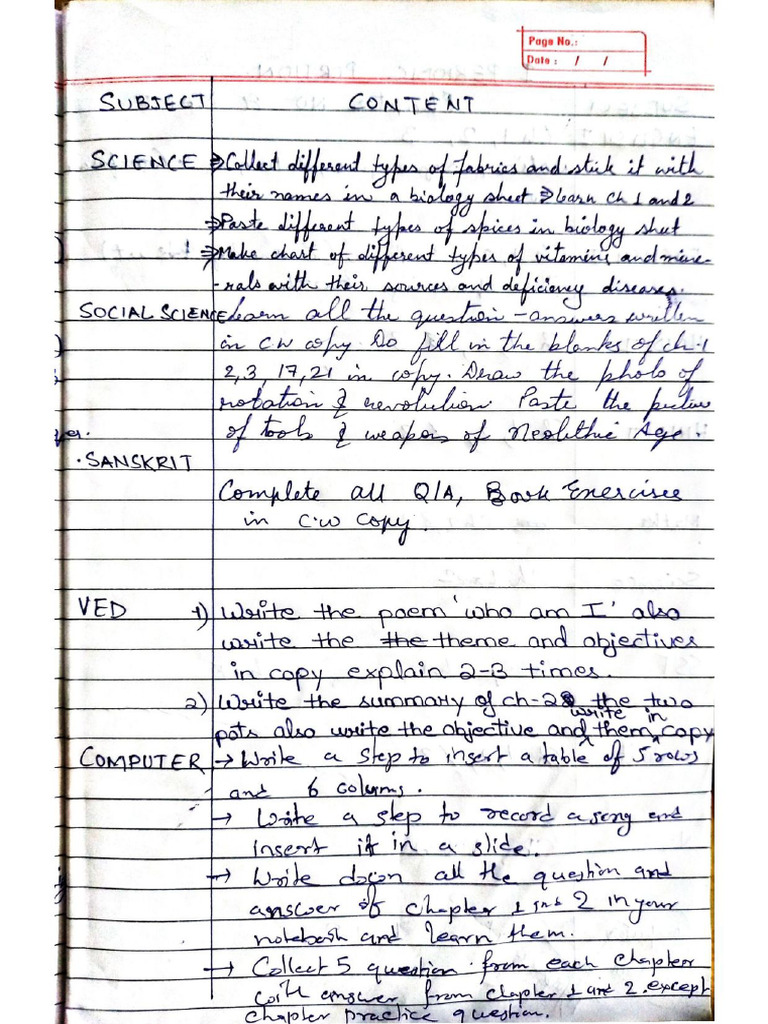 Page No.:
Date : / /
SUBJECT CONTENT
SCIENCE ⇒ Collect different types of fabrics and stick it with
their names in a biology sheet ⇒ learn Ch 1 and 2
⇒ Paste different types of spices in biology sheet
⇒ Make chart of different types of vitamins and mine-
-rals with their sources and deficiency diseases.
SOCIAL SCIENCE Learn all the question-answers written
in CW copy. Do fill in the blanks of ch-1
2,3, 17,21 in copy. Draw the photo of
rotation & revolution. Paste the picture
of tools & weapons of Neolithic Age.
SANSKRIT
Complete all Q/A, Book Exercises
in C.W Copy.
VED 1) Write the poem 'who am I' also
write the the theme and objectives
in copy explain 2-3 times.
2) Write the summary of ch-2 the two
pots also write the objective and write them in copy
COMPUTER → Write a step to insert a table of 5 rows
and 6 colums.
→ Write a step to record a song and
insert it in a slide.
→ Write down all the question and
answer of chapter 1 and 2 in your
notebook and learn them.
→ Collect 5 question from each chapter
with answer from chapter 1 and 2 except
chapter practice question.